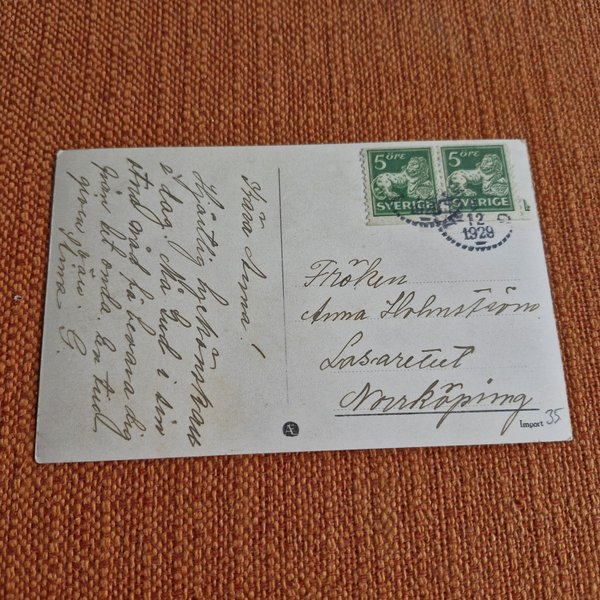 Kära Anna!
Hjärtlig lyckönskan
i dag. Må Gud i sin
stora nåd få bevara dig
från allt ont. En tid
Stina G.
5 ÖRE
SVERIGE
5 ÖRE
SVERIGE
12
1929
Fröken
Anna Holmström
Lasarettet
Norrköping
Import
35